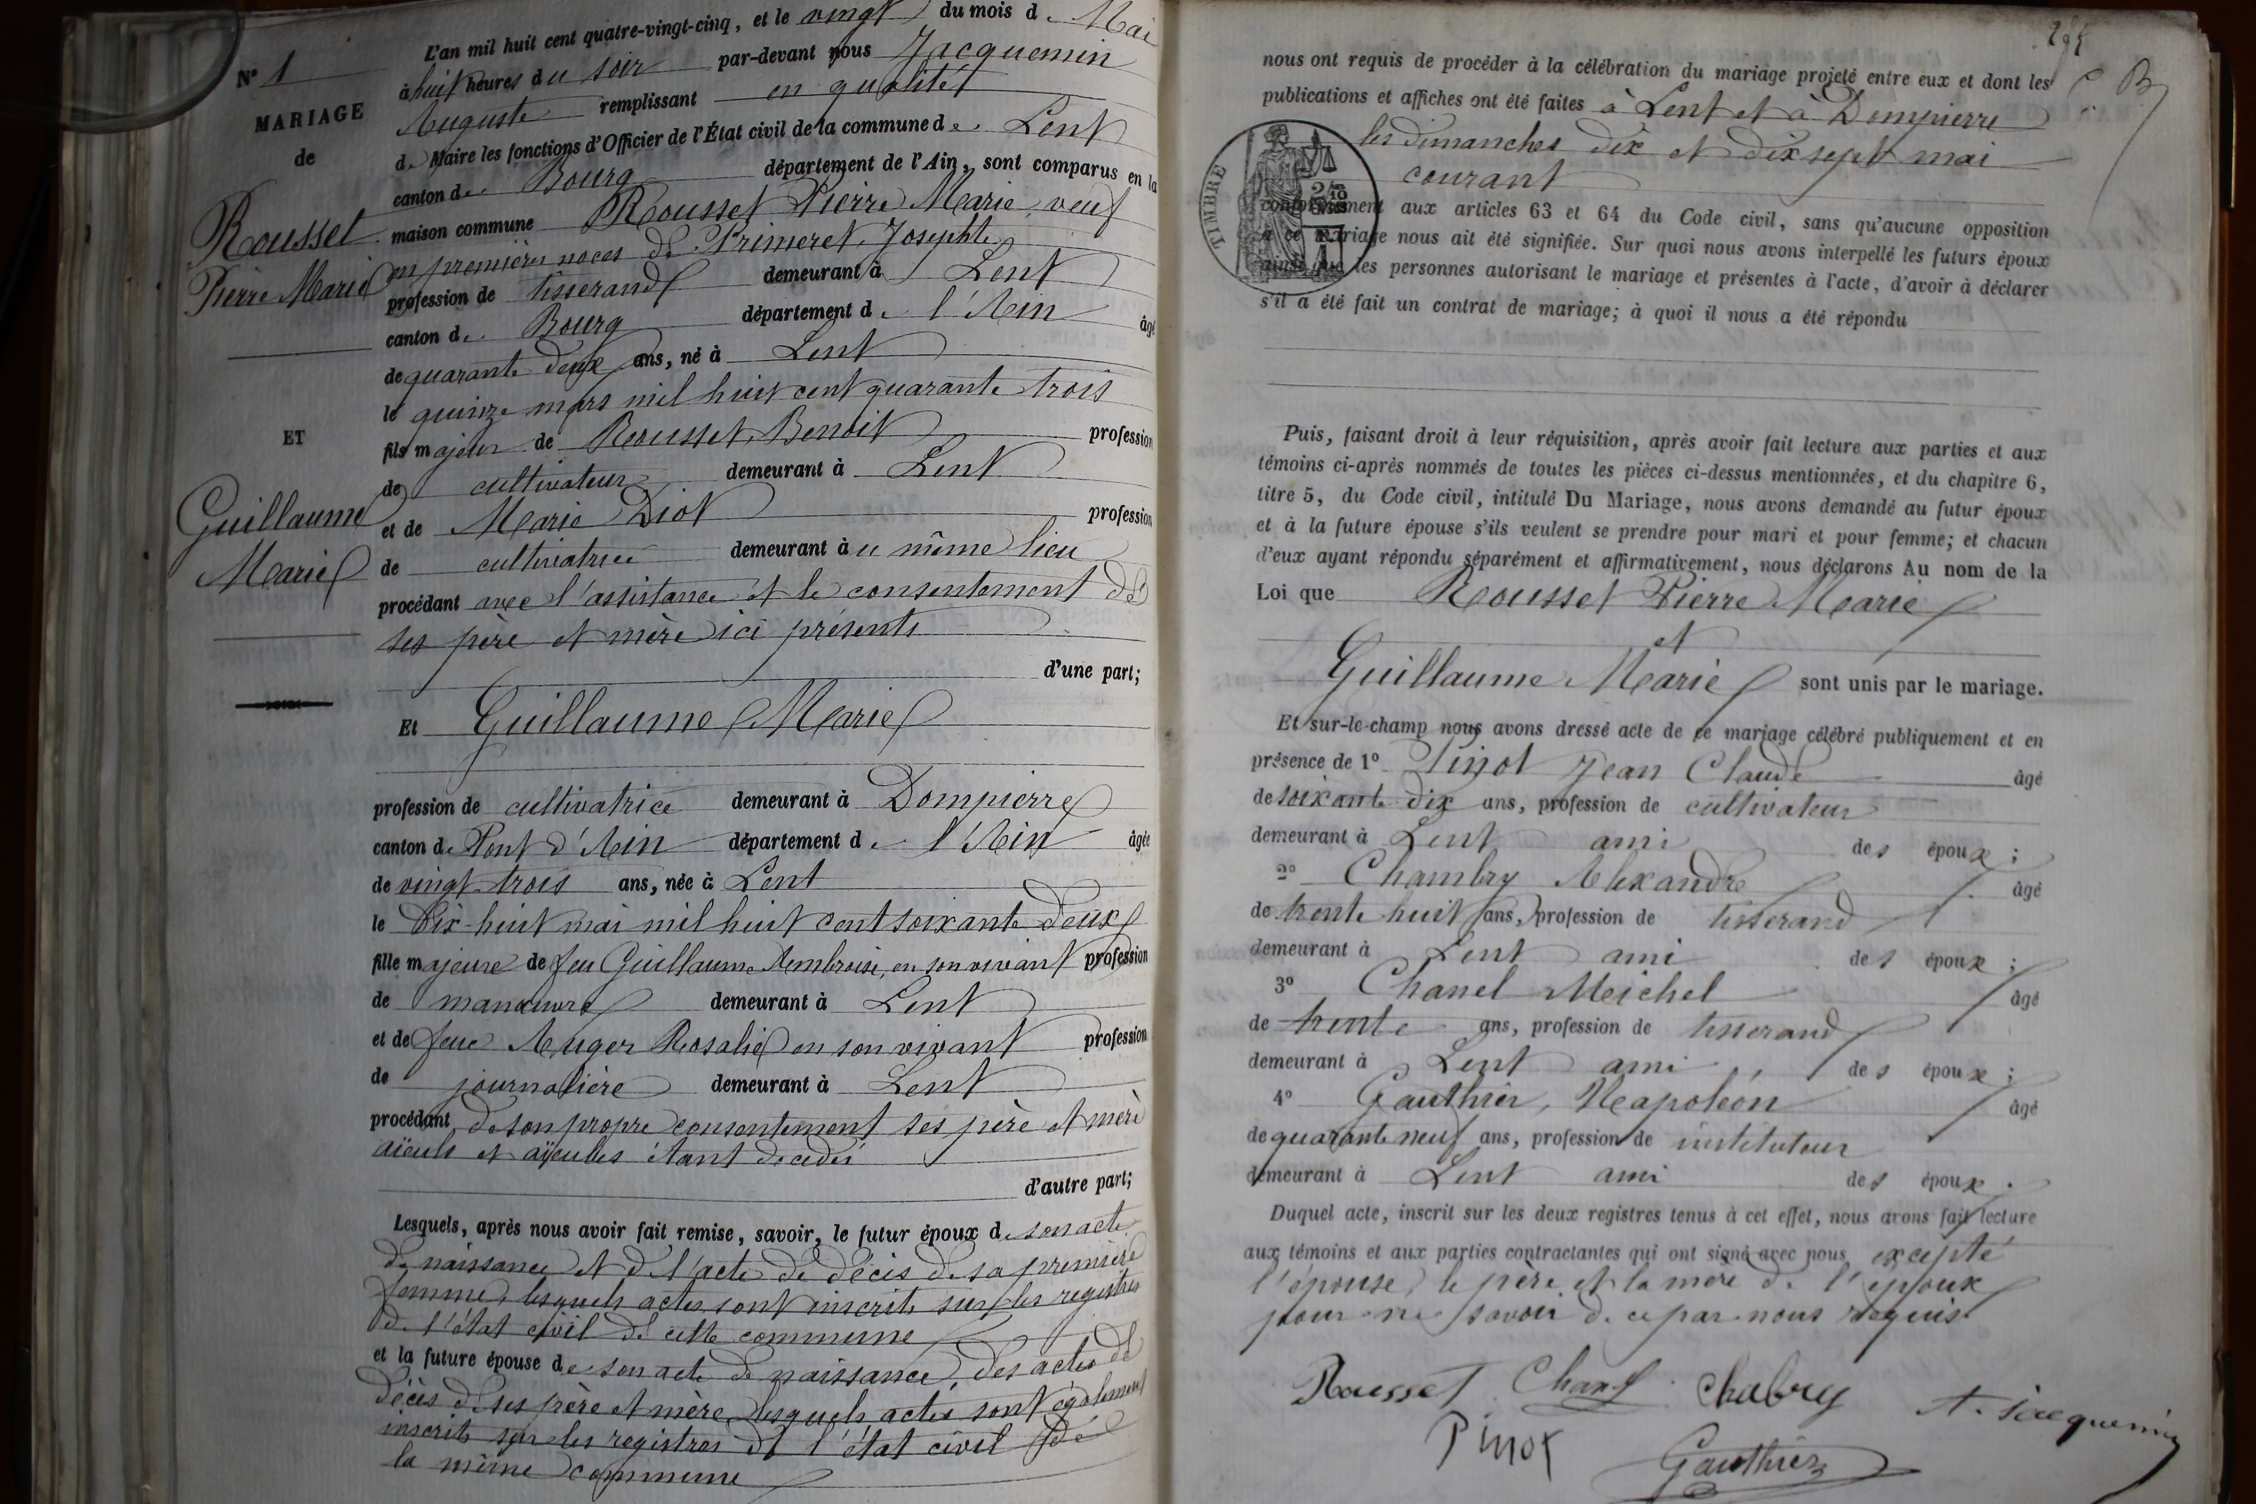 L'an mil huit cent quatre-vingt-cinq, et le vingt du mois de Mai
à huit heures du soir par-devant nous Jacquemin
Auguste remplissant en qualité
de Maire les fonctions d'Officier de l'État civil de la commune de Lent
canton de Bourg département de l'Ain, sont comparus en la
maison commune Rousset Pierre Marie, veuf
en premières noces de Primeret Josephte
profession de tisserand demeurant à Lent
canton de Bourg département de l'Ain âgé
de quarante deux ans, né à Lent
le quinze mars mil huit cent quarante trois
fils majeur de Rousset Benoit profession
de cultivateur demeurant à Lent
et de Marie Diot profession
de cultivatrice demeurant au même lieu
procédant avec l'assistance et le consentement de
ses père et mère ici présents
d'une part;
Et Guillaume Marie
profession de cultivatrice demeurant à Dompierre
canton de Pont d'Ain département de l'Ain âgée
de vingt trois ans, née à Lent
le dix-huit mai mil huit cent soixante deux
fille majeure de feu Guillaume Ambroise, en son vivant profession
de manœuvre demeurant à Lent
et de feue Auger Rosalie en son vivant profession
de journalière demeurant à Lent
procédant de son propre consentement ses père et mère
aïeuls et aïeules étant décédés
d'autre part;
Lesquels, après nous avoir fait remise, savoir, le futur époux de son acte
de naissance et de l'acte de décès de sa première
femme, lesquels actes sont inscrits sur les registres
de l'état civil de cette commune
et la future épouse de son acte de naissance, des actes de
décès de ses père et mère lesquels actes sont également
inscrits sur les registres de l'état civil de
la même commune
N° 1
MARIAGE
de
Rousset
Pierre Marie
ET
Guillaume
Marie
nous ont requis de procéder à la célébration du mariage projeté entre eux et dont les
publications et affiches ont été faites à Lent et à Dompierre
les dimanches dix et dix sept mai
courant
conformément aux articles 63 et 64 du Code civil, sans qu'aucune opposition
à ce mariage nous ait été signifiée. Sur quoi nous avons interpellé les futurs époux
ainsi que les personnes autorisant le mariage et présentes à l'acte, d'avoir à déclarer
s'il a été fait un contrat de mariage; à quoi il nous a été répondu
TIMBRE
Puis, faisant droit à leur réquisition, après avoir fait lecture aux parties et aux
témoins ci-après nommés de toutes les pièces ci-dessus mentionnées, et du chapitre 6,
titre 5, du Code civil, intitulé Du Mariage, nous avons demandé au futur époux
et à la future épouse s'ils veulent se prendre pour mari et pour femme; et chacun
d'eux ayant répondu séparément et affirmativement, nous déclarons Au nom de la
Loi que Rousset Pierre Marie
et
Guillaume Marie sont unis par le mariage.
Et sur-le-champ nous avons dressé acte de ce mariage célébré publiquement et en
présence de 1° Pinot Jean Claude âgé
de soixante dix ans, profession de cultivateur
demeurant à Lent ami des époux;
2° Chambry Alexandre âgé
de trente huit ans, profession de tisserand
demeurant à Lent ami des époux;
3° Chanel Meichel âgé
de trente ans, profession de tisserand
demeurant à Lent ami des époux;
4° Gauthier, Napoléon âgé
de quarante neuf ans, profession de instituteur
demeurant à Lent ami des époux.
Duquel acte, inscrit sur les deux registres tenus à cet effet, nous avons fait lecture
aux témoins et aux parties contractantes qui ont signé avec nous, excepté
l'épouse, le père et la mère de l'époux
pour ne savoir de ce par nous requis.
Rousset Chanel Chabry A. Jacquemin
Pinot Gauthier